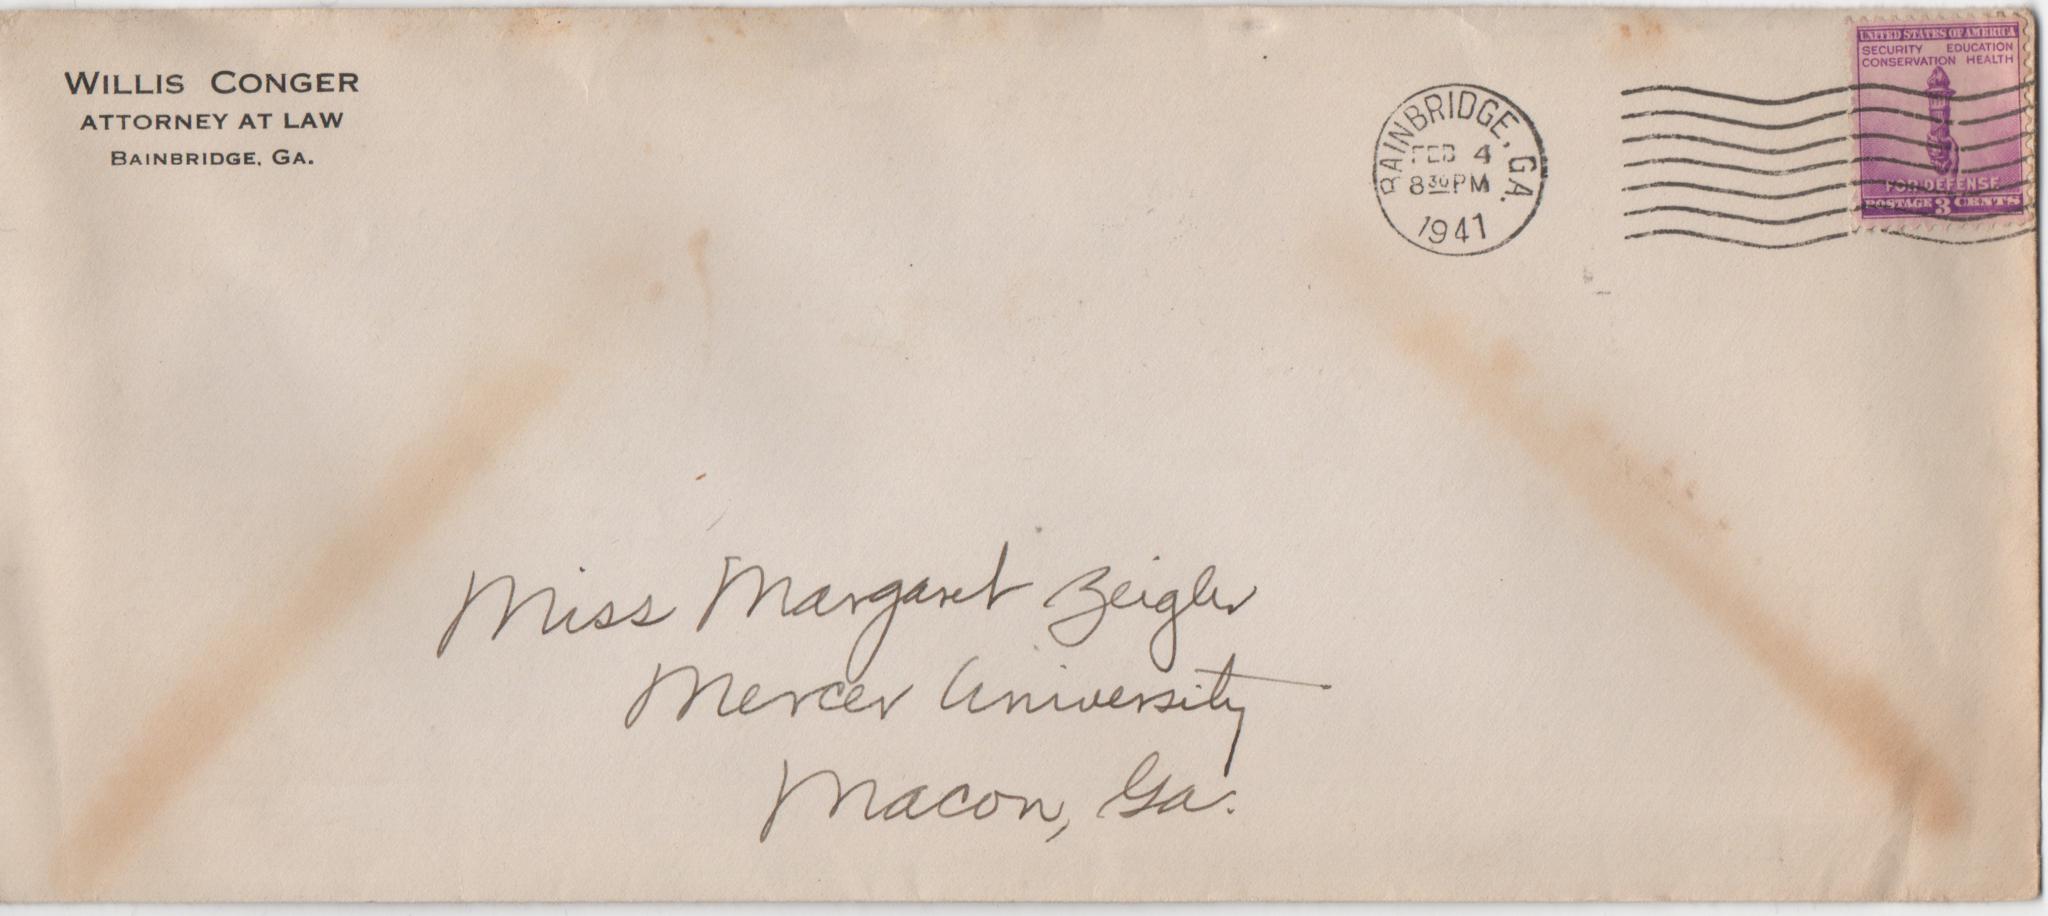 WILLIS CONGER
ATTORNEY AT LAW
BAINBRIDGE, GA.
BAINBRIDGE, GA.
FEB 4
8 30 PM
1941
UNITED STATES OF AMERICA
SECURITY EDUCATION
CONSERVATION HEALTH
FOR DEFENSE
POSTAGE 3 CENTS
Miss Margaret Zeigler
Mercer University
Macon, Ga.